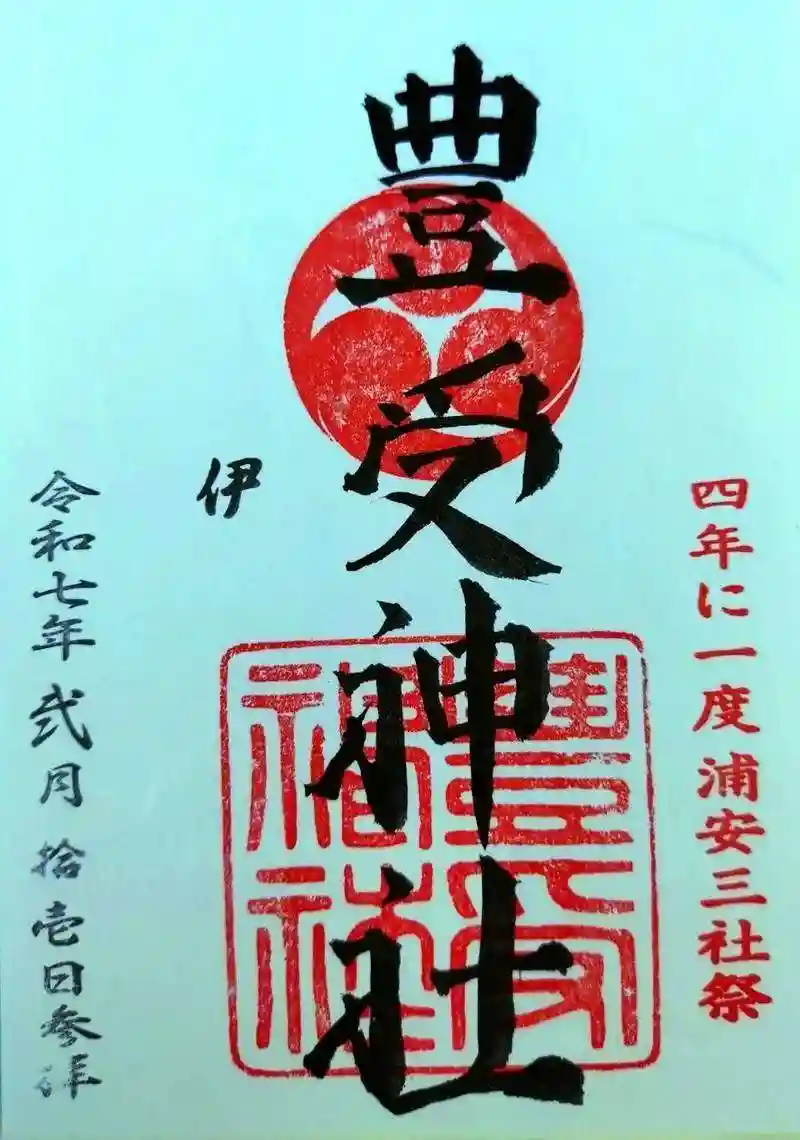 四年に一度浦安三社祭
豊受神社
豊受神社
伊
令和七年 弐月 拾壱日参拝